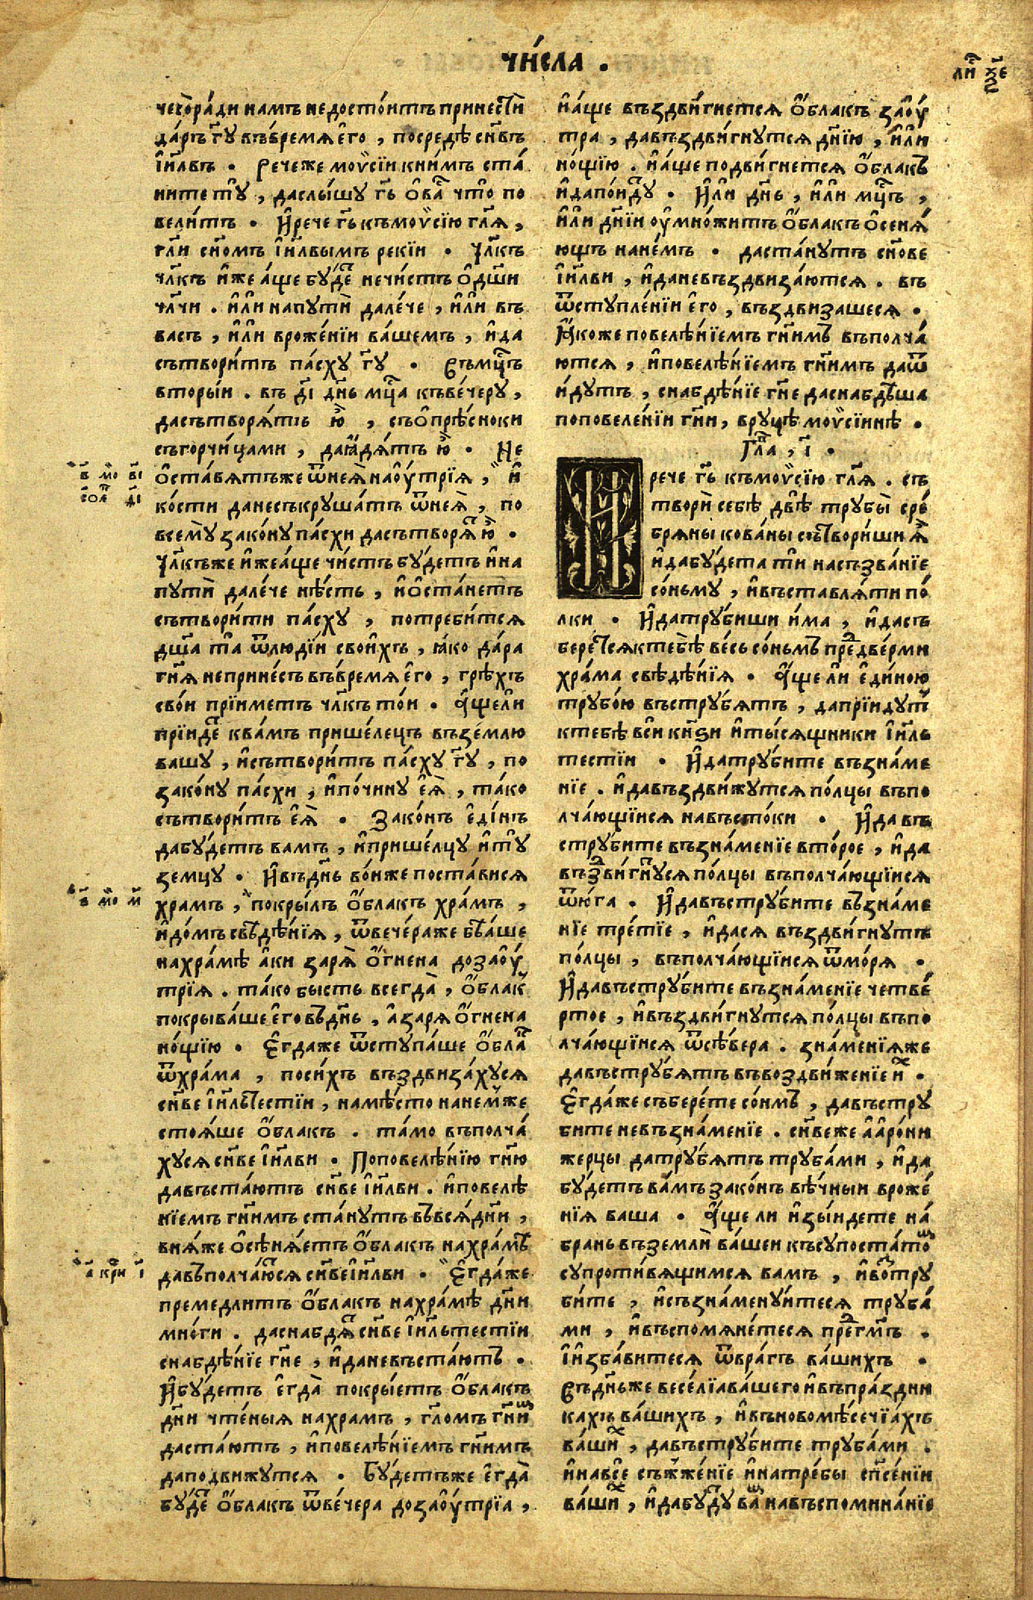 чи́сла .
ли҃ ѯ҃е
чесо́ради намъ недосто́итъ принестѝ
да́ръ гу҃ въвремѧ є҆го̀ , посредѣ̀ сн҃въ
і҆и҃лвъ . Рече́же моѷсі́и книмъ ста́
ните ту҆̀ , даслы́шу гь҃ ѻ҆ ва́с что̀ по
вели́тъ . И҆речѐ гь҃ къмоѷсі́ю гл҃ѧ ,
гл҃и сн҃омъ і҆и҃лвымъ рекі́и . Чл҃къ
чл҃къ и҆́же а҆́ще бу́де нечи́стъ ѻ҆ дш҃и
чл҃чи . и҆лѝ напутѝ дале́че , и҆лѝ въ
васъ , и҆лѝ врожє́нїи ва́шемъ , и҆да
сътвори́тъ па́сху гу҃ . Въмцⷭ҇ъ
вторы́и . въ д҃і дн҃ь мцⷭ҇а къве́черу ,
дасътворѧ́тъ ю҆̀ , съѻ҆прѣ́сноки
съгорчи́цами , даꙗ҆дѧ́тъ ю҆̀ . Не
ѻ҆ста́вѧтъже ѿнеѧ̀ нао҆у́трїѧ , и҆
ко́сти данесъкруша́тъ ѿнеѧ̀ , по
всемꙋ̀ зако́ну па́схи дасътворѧ́т ю҆̀ .
Чл҃къже и҆́жеа҆́ще чи́стъ бу́детъ и҆на
путѝ дале́че нѣ́сть , и҆ѻ҆ста́нетъ
сътвори́ти па́сху , потреби́тсѧ
дш҃а та̀ ѿлюді́и свои́хъ , ꙗ҆́ко да́ра
гн҃ѧ непринє́съ въвремѧ є҆го̀ , грѣ́хъ
сво́и прїи́метъ чл҃къ то́и . А҆́щели
прїи́де ква́мъ прише́лецъ взе́млю
вашу , и҆сътвори́тъ па́сху гу҃ , по
зако́ну па́схи , и҆почи́ну є҆ѧ̀ , та́ко
сътвори́тъ є҆ѧ̀ . Зако́нъ є҆ди́нъ
дабу́детъ вамъ , и҆прише́лцу и҆ту
земцу . И҆въдн҃ь во́ньже поста́висѧ
храмъ , покры́лъ ѻ҆́блакъ хра́мъ ,
и҆до́мъ свѣдѣ́нїѧ , ѿве́чераже бѣ́аше
нахра́мѣ а҆́ки зарѧ̀ ѻ҆́гнена дозао҆у́
трїѧ . та́ко бысть всегда̀ , ѻ҆́блак
покрыва́ше є҆го̀ въдн҃ь , а҆зарѧ̀ ѻ҆́гнена
но́щїю . Є҆гда́же ѿступа́ше ѻ҆́бла
ѿхра́ма , поси́хъ въздвиза́хусѧ
сн҃ве і҆и҃льтестїи , намѣ́сто нане́мже
стоѧ́ше ѻ҆́блакъ . та́мо въполча́
хусѧ сн҃ве і҆и҃лви . Поповелѣ́нїю гн҃ю
давъста́ютъ сн҃ве і҆и҃лви . и҆повелѣ́
нїемъ гн҃имъ ста́нутъ въвсѧ̀ дн҃и ,
внѧ́же ѻ҆сѣнѧ́етъ ѻ҆́блакъ нахра́мъ
давъполча́ютсѧ сн҃ве і҆и҃лви . Є҆гда́же
премедли́тъ ѻ҆́блакъ нахра́мѣ дн҃и
мно́ги . даснабдѧ́т сн҃ве і҆и҃льтестїи
снабдѣ́нїе гн҃е , и҆даневъста́ютъ .
И҆бу́детъ є҆гда̀ покры́етъ ѻ҆́блакъ
дн҃и чте́ныѧ нахрамъ , гл҃омъ гн҃им
даста́ютъ , и҆повелѣ́нїемъ гн҃имъ
даподви́жутсѧ . Бу́детъже є҆гда̀
бу́де ѻ҆́блакъ ѿве́чера дозао҆у́трїа ,
в҃ мо в҃і
соⷧ҇ д҃і
в҃ мо м҃
а҃ кри і҃
и҆а҆́ще въздви́гнетсѧ ѻ҆́блакъ зао҆у́
тра , давъздви́гнутсѧ дн҃їю , и҆лѝ
но́щїю . и҆а҆́ще подви́гнетсѧ ѻ҆́блакъ
и҆дапо́иду . И҆лѝ дн҃ь , и҆лѝ мцⷭ҇ъ ,
и҆лѝ дн҃їи о҆умно́житъ ѻ҆́блакъ ѻ҆сенѧ́
ющъ нане́мъ . даста́нутъ сн҃ове
і҆и҃лви , и҆даневъздвиза́ютсѧ . въ
ѿступле́нїи є҆го̀ , въздвизашесѧ .
Ꙗ҆́коже повелѣ́нїемъ гн҃имъ въполча́
ютсѧ , и҆повелѣ́нїемъ гн҃имъ даѿ
и́дутъ , снабдѣ́нїе гн҃е даснабдѣ́ша
поповеле́нїи гн҃и , вруцѣ̀ моѷсі́инѣ .
Глⷡ҇а , і҃ .
И речѐ гь҃ къмоѷсі́ю гл҃ѧ . съ
творѝ себѣ̀ двѣ̀ трубы̀ сре́
брѧны кова́ны сътвори́ши ѧ҆̀
и҆дабу́дета тѝ насъзва́нїе
со́ньму , и҆въставлѧ́ти по́
лки . И҆датру́биши и҆́ма , и҆дасъ
бере́тсѧ ктебѣ̀ ве́сь со́ньмъ пре́две́рми
хра́ма свѣдѣ́нїѧ . А҆́ще лѝ є҆ди́ною
трубо́ю въстру́бѧтъ , дапрїи́дут
ктебѣ̀ всѝ кн҃ѕи и҆ты́сѧщники і҆и҃ль
тестїи . И҆датру́бите възна́ме
нїе . и҆давъздви́жутсѧ по́лцы въпо
лча́ющїисѧ навъсто́ки . И҆давъ
стру́бите възна́менїе второ́е , и҆да
възви́гнусѧ по́лцы въполча́ющїисѧ
ѿю́га . И҆давъстру́бите възна́ме
нїе тре́тїе , и҆дасѧ̀ въздви́гнутъ
по́лцы , въполча́ющїисѧ ѿмо́рѧ .
И҆давъстру́бите възна́менїе четве́
ртое , и҆въздви́гнутсѧ по́лцы въпо
лча́ющїисѧ ѿсѣ́вера . зна́менїѧже
давъстру́бѧтъ въвоздви́женїе и҆́х .
Є҆гда́же събере́те со́имъ , давъстру́
бите невъзна́менїе . сн҃веже а҆арѡ́ни
жерцы̀ датру́бѧтъ труба́ми , и҆да
бу́детъ ва́мъ зако́нъ вѣ́чныи вроже́
нїѧ ваша . А҆́ще ли и҆зы́идете на́
брань въземлѝ ва́шеи къ супоста́том
супроти́вѧщимсѧ вамъ , и҆востру́
бите , и҆съзна́менуитесѧ труба́
ми , и҆въспомѧне́тесѧ предгм҃ъ .
І҆и҆зба́витесѧ ѿвра́гъ ва́шихъ .
Въдн҃ьже весе́лїа ва́шего и҆въпра́здни
кахъ ва́шихъ , и҆въновомѣ́сечїахъ
ва́ших , давъстру́бите труба́ми .
и҆навсѐ съжже́нїе и҆натре́бы сп҃се́нїи
ва́ших , и҆дабу́ду вам навъспомина́нїе